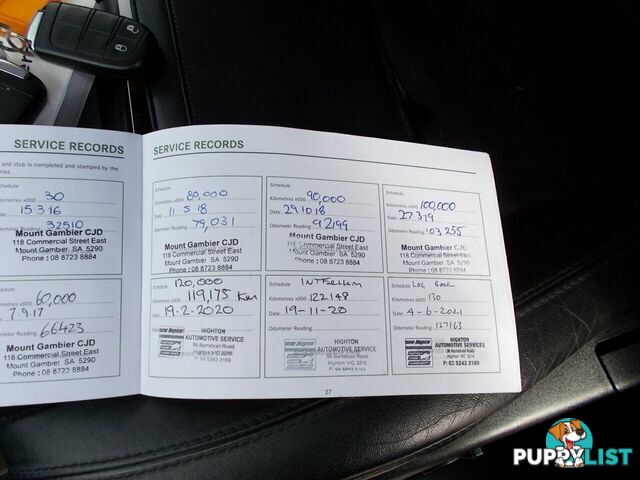 SERVICE RECORDS
and stub is completed and stamped by the
Schedule
Kilometres x000 30
15 3 16
Odometer Reading 32510
Mount Gambier CJD
118 Commercial Street East
Mount Gambier, SA 5290
Phone : 08 8723 8884
Schedule
60,000
7.9.17
Odometer Reading: 66423
Mount Gambier CJD
118 Commercial Street East
Mount Gambier SA 5290
Phone : 08 8723 8884
SERVICE RECORDS
Schedule
Kilometres x000 80,000
Date 11 5 18
Odometer Reading 79,031
Mount Gambier CJD
118 Commercial Street East
Mount Gambier, SA 5290
Phone : 08 8723 8884
Schedule
Kilometres x000 90,000
Date 29.10.18
Odometer Reading 92199
Mount Gambier CJD
118 Commercial Street East
Mount Gambier, SA 5290
Phone : 08 8723 8884
Schedule
Kilometres x000 100,000
Date 27 3 19
Odometer Reading 103 255
Mount Gambier CJD
118 Commercial Street East
Mount Gambier, SA 5290
Phone : 08 8723 8884
120,000
119,175 Km
19-2-2020
HIGHTON
AUTOMOTIVE SERVICES
56 Barrabool Road
Highton VIC 3216
P: 03 5243 2169
Schedule
Kilometres x000 122148
Date 19-11-20
Odometer Reading
HIGHTON
AUTOMOTIVE SERVICES
56 Barrabool Road
Highton VIC 3216
P: 03 5243 2169
Schedule Log Book
Kilometres x000 130
Date 4-6-2021
Odometer Reading 127163
HIGHTON
AUTOMOTIVE SERVICES
56 Barrabool Road
Highton VIC 3216
P: 03 5243 2169
27
PUPPYLIST